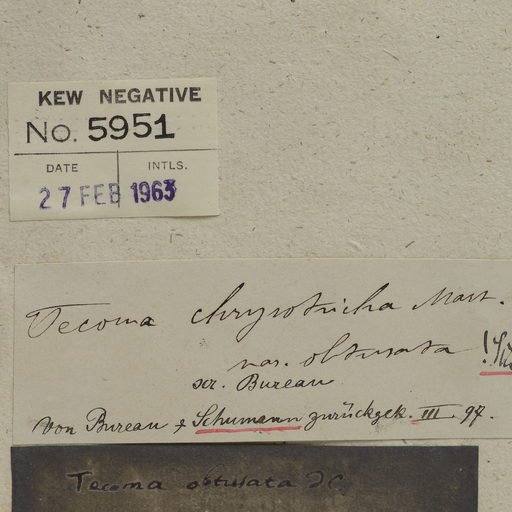 KEW NEGATIVE
No. 5951
DATE INTLS.
27 FEB 1963
Tecoma chrysotricha Mart.
var. obtusata !
scr. Bureau
von Bureau & Schumann zurückgek. III. 97.
Tecoma obtusata DC